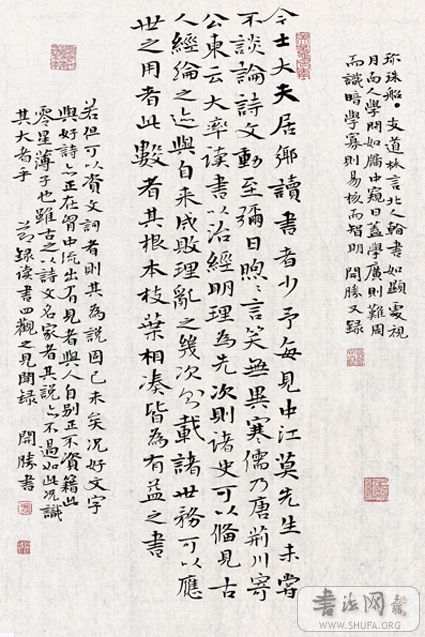 珍珠船。支道林言北人看書如顯處視
月南人學問如牖中窺日蓋學廣則難周
而識暗學寡則易核而智明 開勝又錄
今士大夫居鄉讀書者少予每見中江莫先生未嘗
不談論詩文動至彌日煦々言笑無異寒儒乃唐荊川寄
公東云大率讀書以治經明理為先次則諸史可以備見古
人經綸之迹與自来成敗理亂之幾次則載諸世務可以應
世之用者此數者其根本枝葉相湊皆為有益之書
若但可以資文詞者則其為說固已末矣況好文字
與好詩亦正在胷中流出有見者與人自别正不資籍此
零星薄子也雖古之以詩文名家者其說亦不過如此況識
其大者乎 節録讀書四觀之見聞録 開勝書
書法网
WWW.SHUFA.ORG